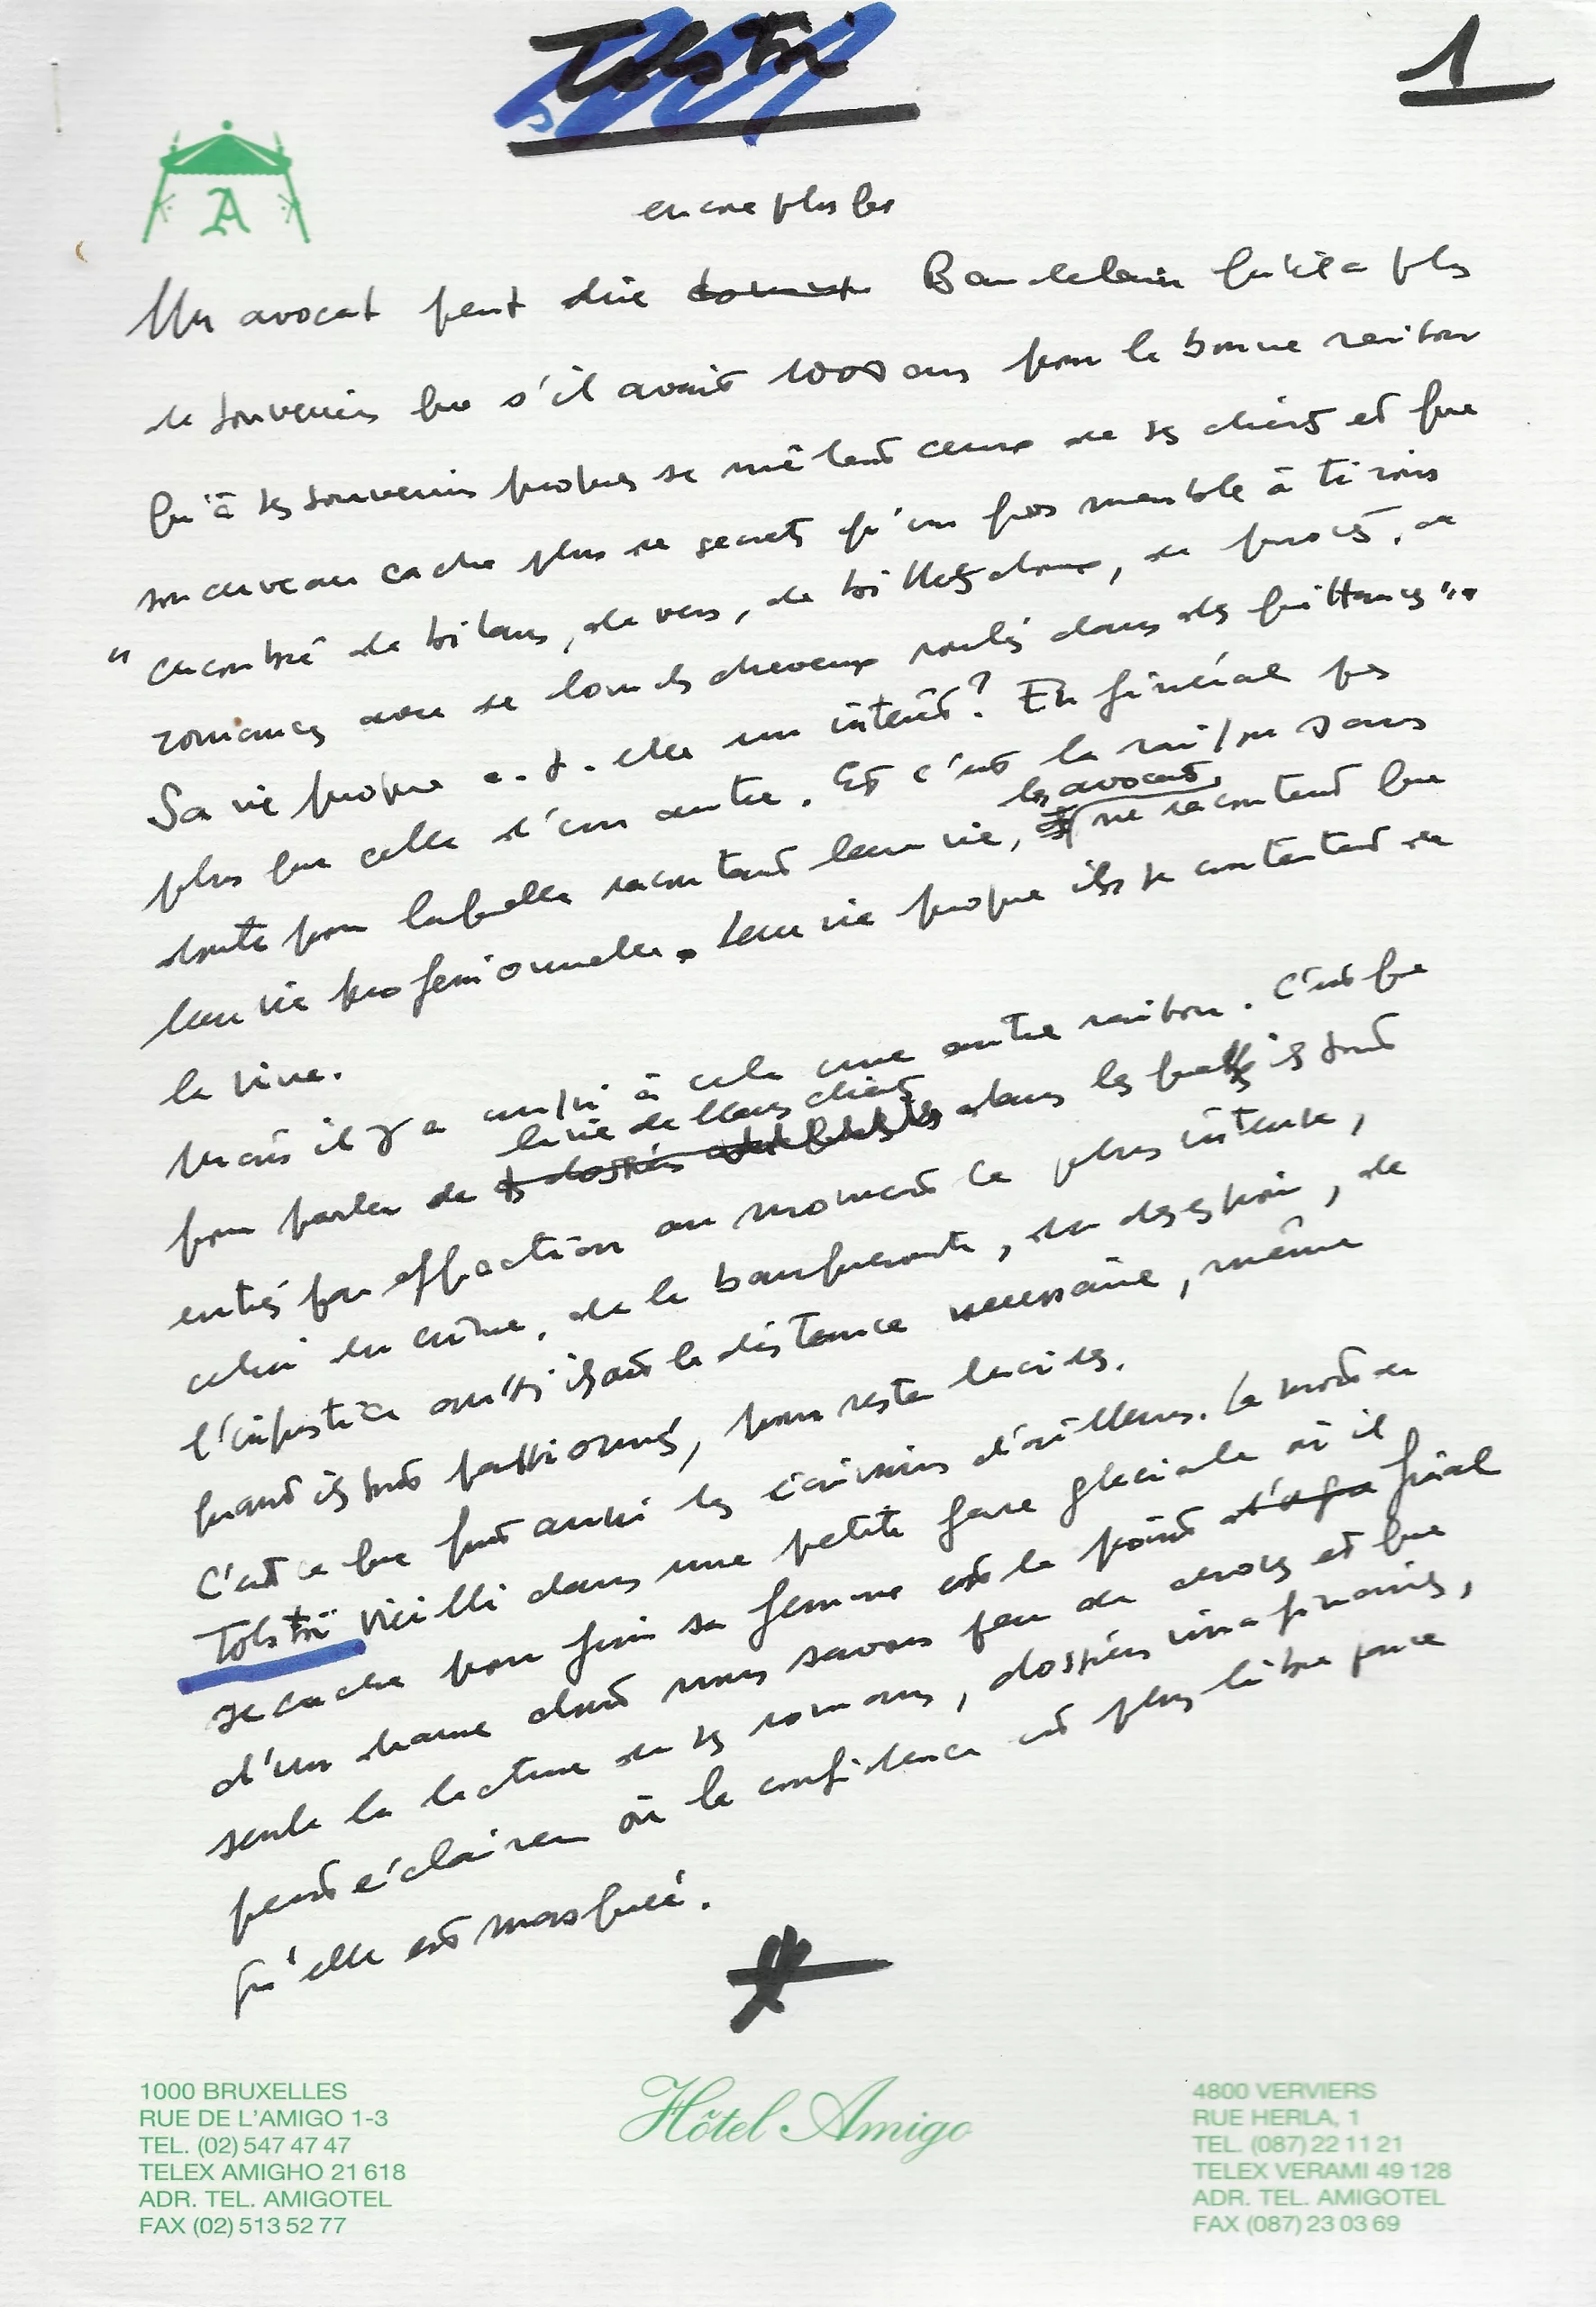 Tolstoï
1
A
encore plus bas
Un avocat peut dire Baudelaire qu'il a plus
de souvenirs que s'il avait 1000 ans pour la bonne raison
qu'à ses souvenirs propres se mêlent ceux de ses clients et que
son cerveau cache plus de secrets qu'un gros meuble à tiroirs
"encombré de bilans, de vers, de billets doux, de procès, de
romances avec de lourds cheveux roulés dans des quittances".
Sa vie propre a-t-elle un intérêt? En général pas
plus que celle d'un autre. Et c'est la raison sans
doute pour laquelle racontant leur vie, les avocats ne racontent que
leur vie professionnelle. Leur vie propre ils se contentent de
la vivre.
Mais il y a aussi à cela une autre raison. C'est que
pour parler de la vie de leurs clients dans les quelles ils sont
entrés par effraction au moment le plus intense,
celui du crime, de la banqueroute, du desespoir, de
l'injustice aussi ils ont la distance necessaire, même
quand ils sont passionnés, pour rester lucides.
C'est ce que font aussi les écrivains d'ailleurs. La mort de
Tolstoï vieilli dans une petite gare glaciale où il
se cache pour fuir sa femme est le point final
d'un drame dont nous savons peu de choses et que
seule la lecture de ses romans, dossiers imaginaires,
peut éclairer où la confidence est plus libre parce
qu'elle est masquée.
1000 BRUXELLES
RUE DE L'AMIGO 1-3
TEL. (02) 547 47 47
TELEX AMIGHO 21 618
ADR. TEL. AMIGOTEL
FAX (02) 513 52 77
Hôtel Amigo
4800 VERVIERS
RUE HERLA, 1
TEL. (087) 22 11 21
TELEX VERAMI 49 128
ADR. TEL. AMIGOTEL
FAX (087) 23 03 69